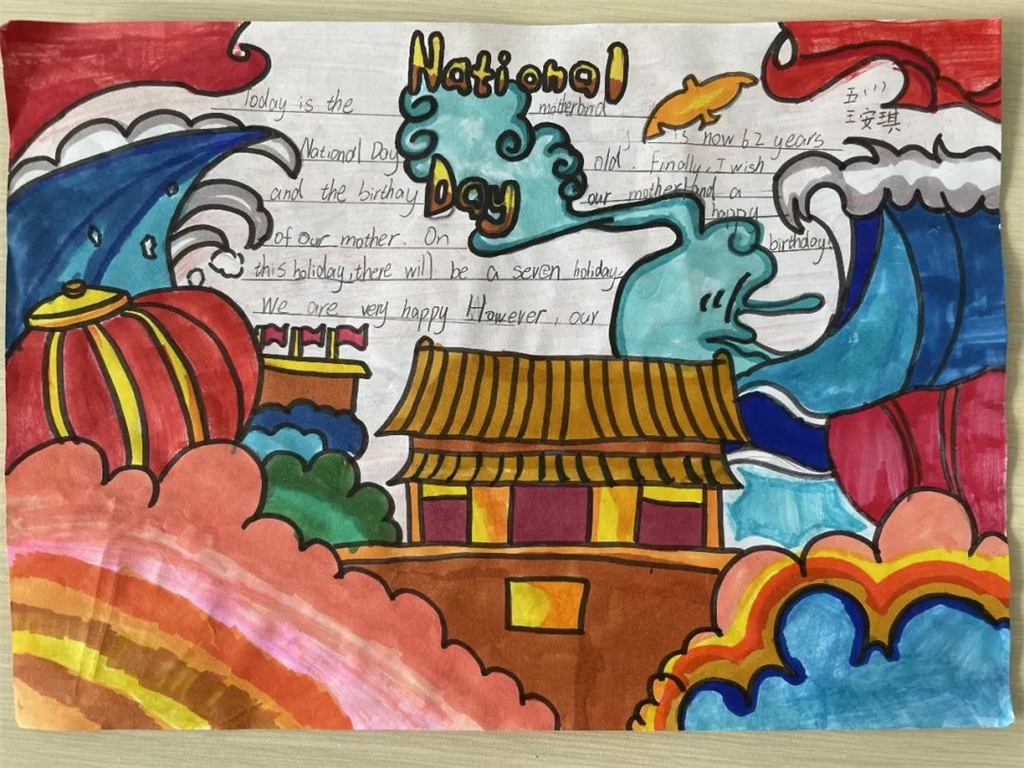 National
Day
五(1)
王安琪
Today is the
National Day
and the birthay
of our mother. On
this holiday, there will be a seven holiday.
We are very happy However, our
motherland
is now 62 years
old. Finally, I wish
our motherland a
happy
birthday!